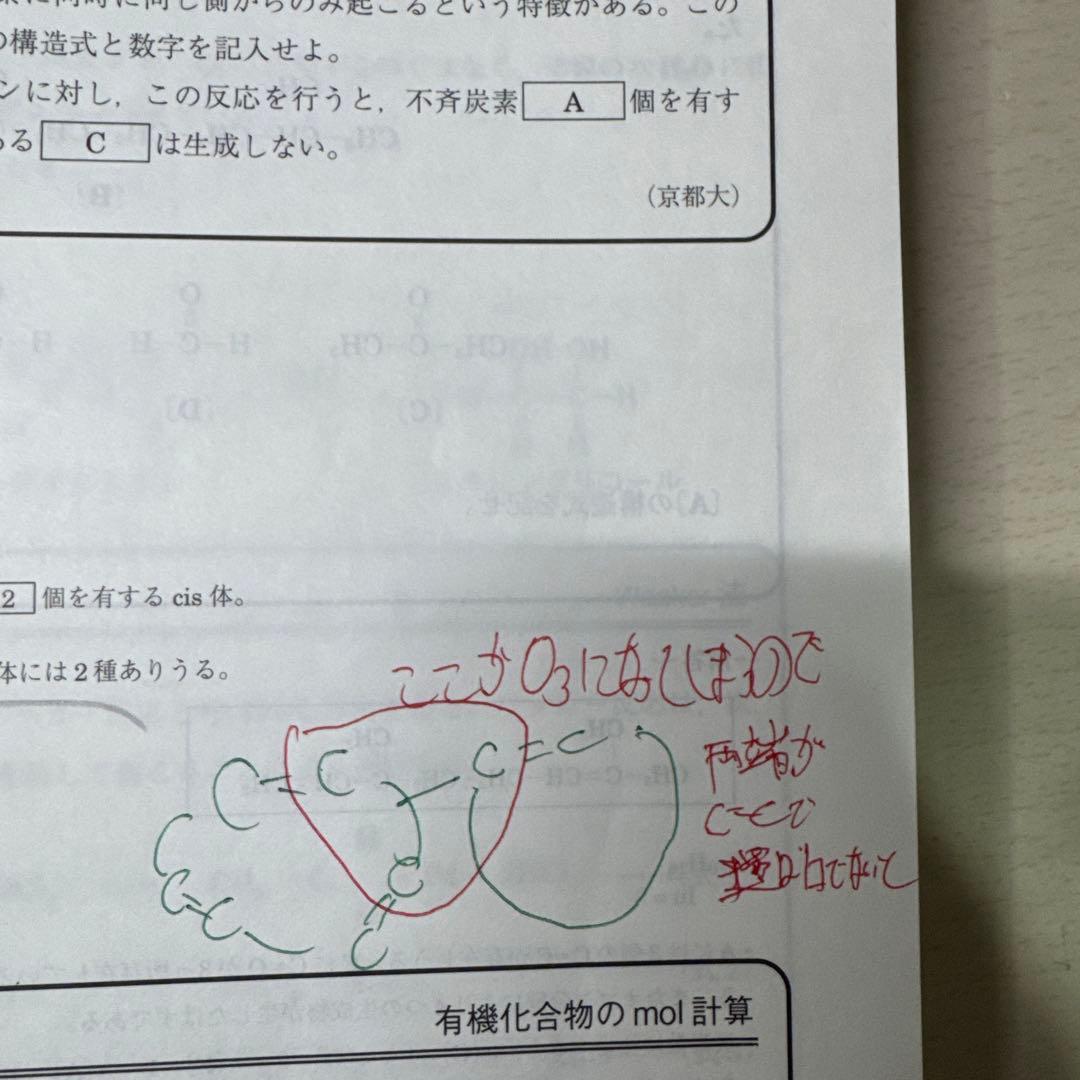 に同時に同じ側からのみ起こるという特徴がある。この
の構造式と数字を記入せよ。
ンに対し，この反応を行うと，不斉炭素 A 個を有す
る C は生成しない。
(京都大)
2 個を有する cis 体。
体には2種ありうる。
ここが O₃ になってしまうので
両端が
C=Cで
ないと
C=C C=C
C
C=C C
有機化合物の mol 計算